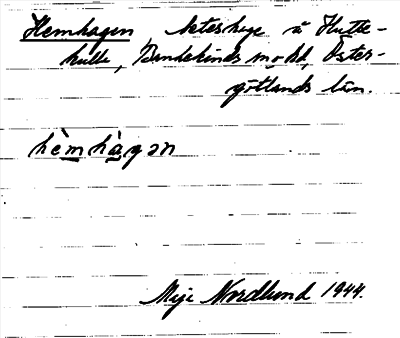 Hemhagen, beteshage å Hutte-
kulle, Bankekinds sn o hd, Öster-
götlands län.
hèmhàgən
Maj Nordlund 1944.